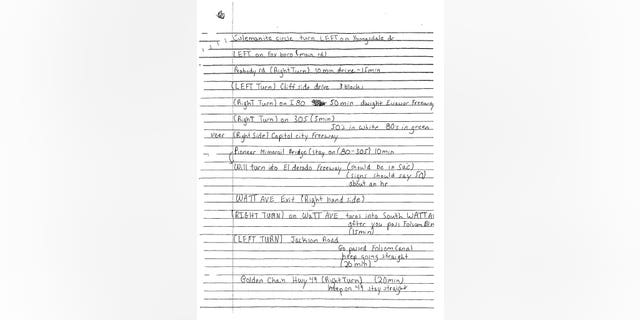 Colemanite circle turn LEFT on Youngsdale dr
LEFT on Foxboro (main rd)
Peabody rd (Right Turn) 10 min drive - 15 min
(LEFT Turn) Cliff side drive 3 blocks
(Right Turn) on I 80 50 min dwight Eisenower freeway
(Right Turn) on 305 (5 min)
50's in white 80's in green
veer (Right Side) Capitol city Freeway
Pioneer Memorail Bridge (stay on (80-305) 10 min
Will turn ito El dorado Freeway (should be in Sac)
(signs should say 50)
about an hr
WATT AVE Exit (Right hand side)
(RIGHT TURN) on WATT AVE turns into South WATT AV
after you pass Folsom Blvd
(15 min)
(LEFT TURN) Jackson Road
Go passed Folsom Canal
keep going straight
(20 min)
Golden Chain Hwy 49 (Right Turn) (20 min)
keep on 49 stay straight